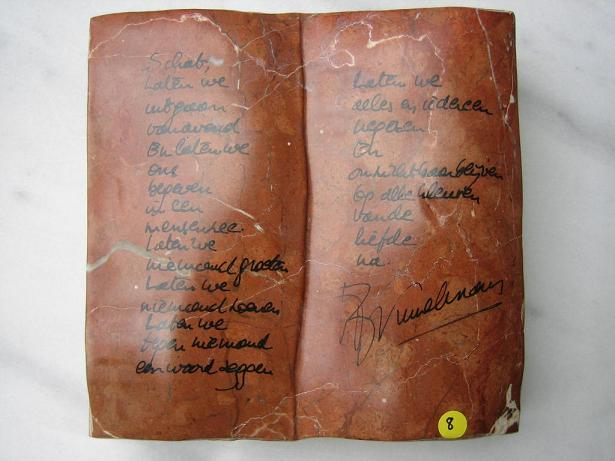 Schat,
Laten we
uitgaan
vanavond
En laten we
ons
begeven
in een
mensenzee.
Laten we
niemand groeten
Laten we
niemand kennen
Laten we
tegen niemand
een woord zeggen
Laten we
alles en iedereen
negeren
En
onzichtbaar blijven
Op alle kleuren
van de
liefde
na.
8